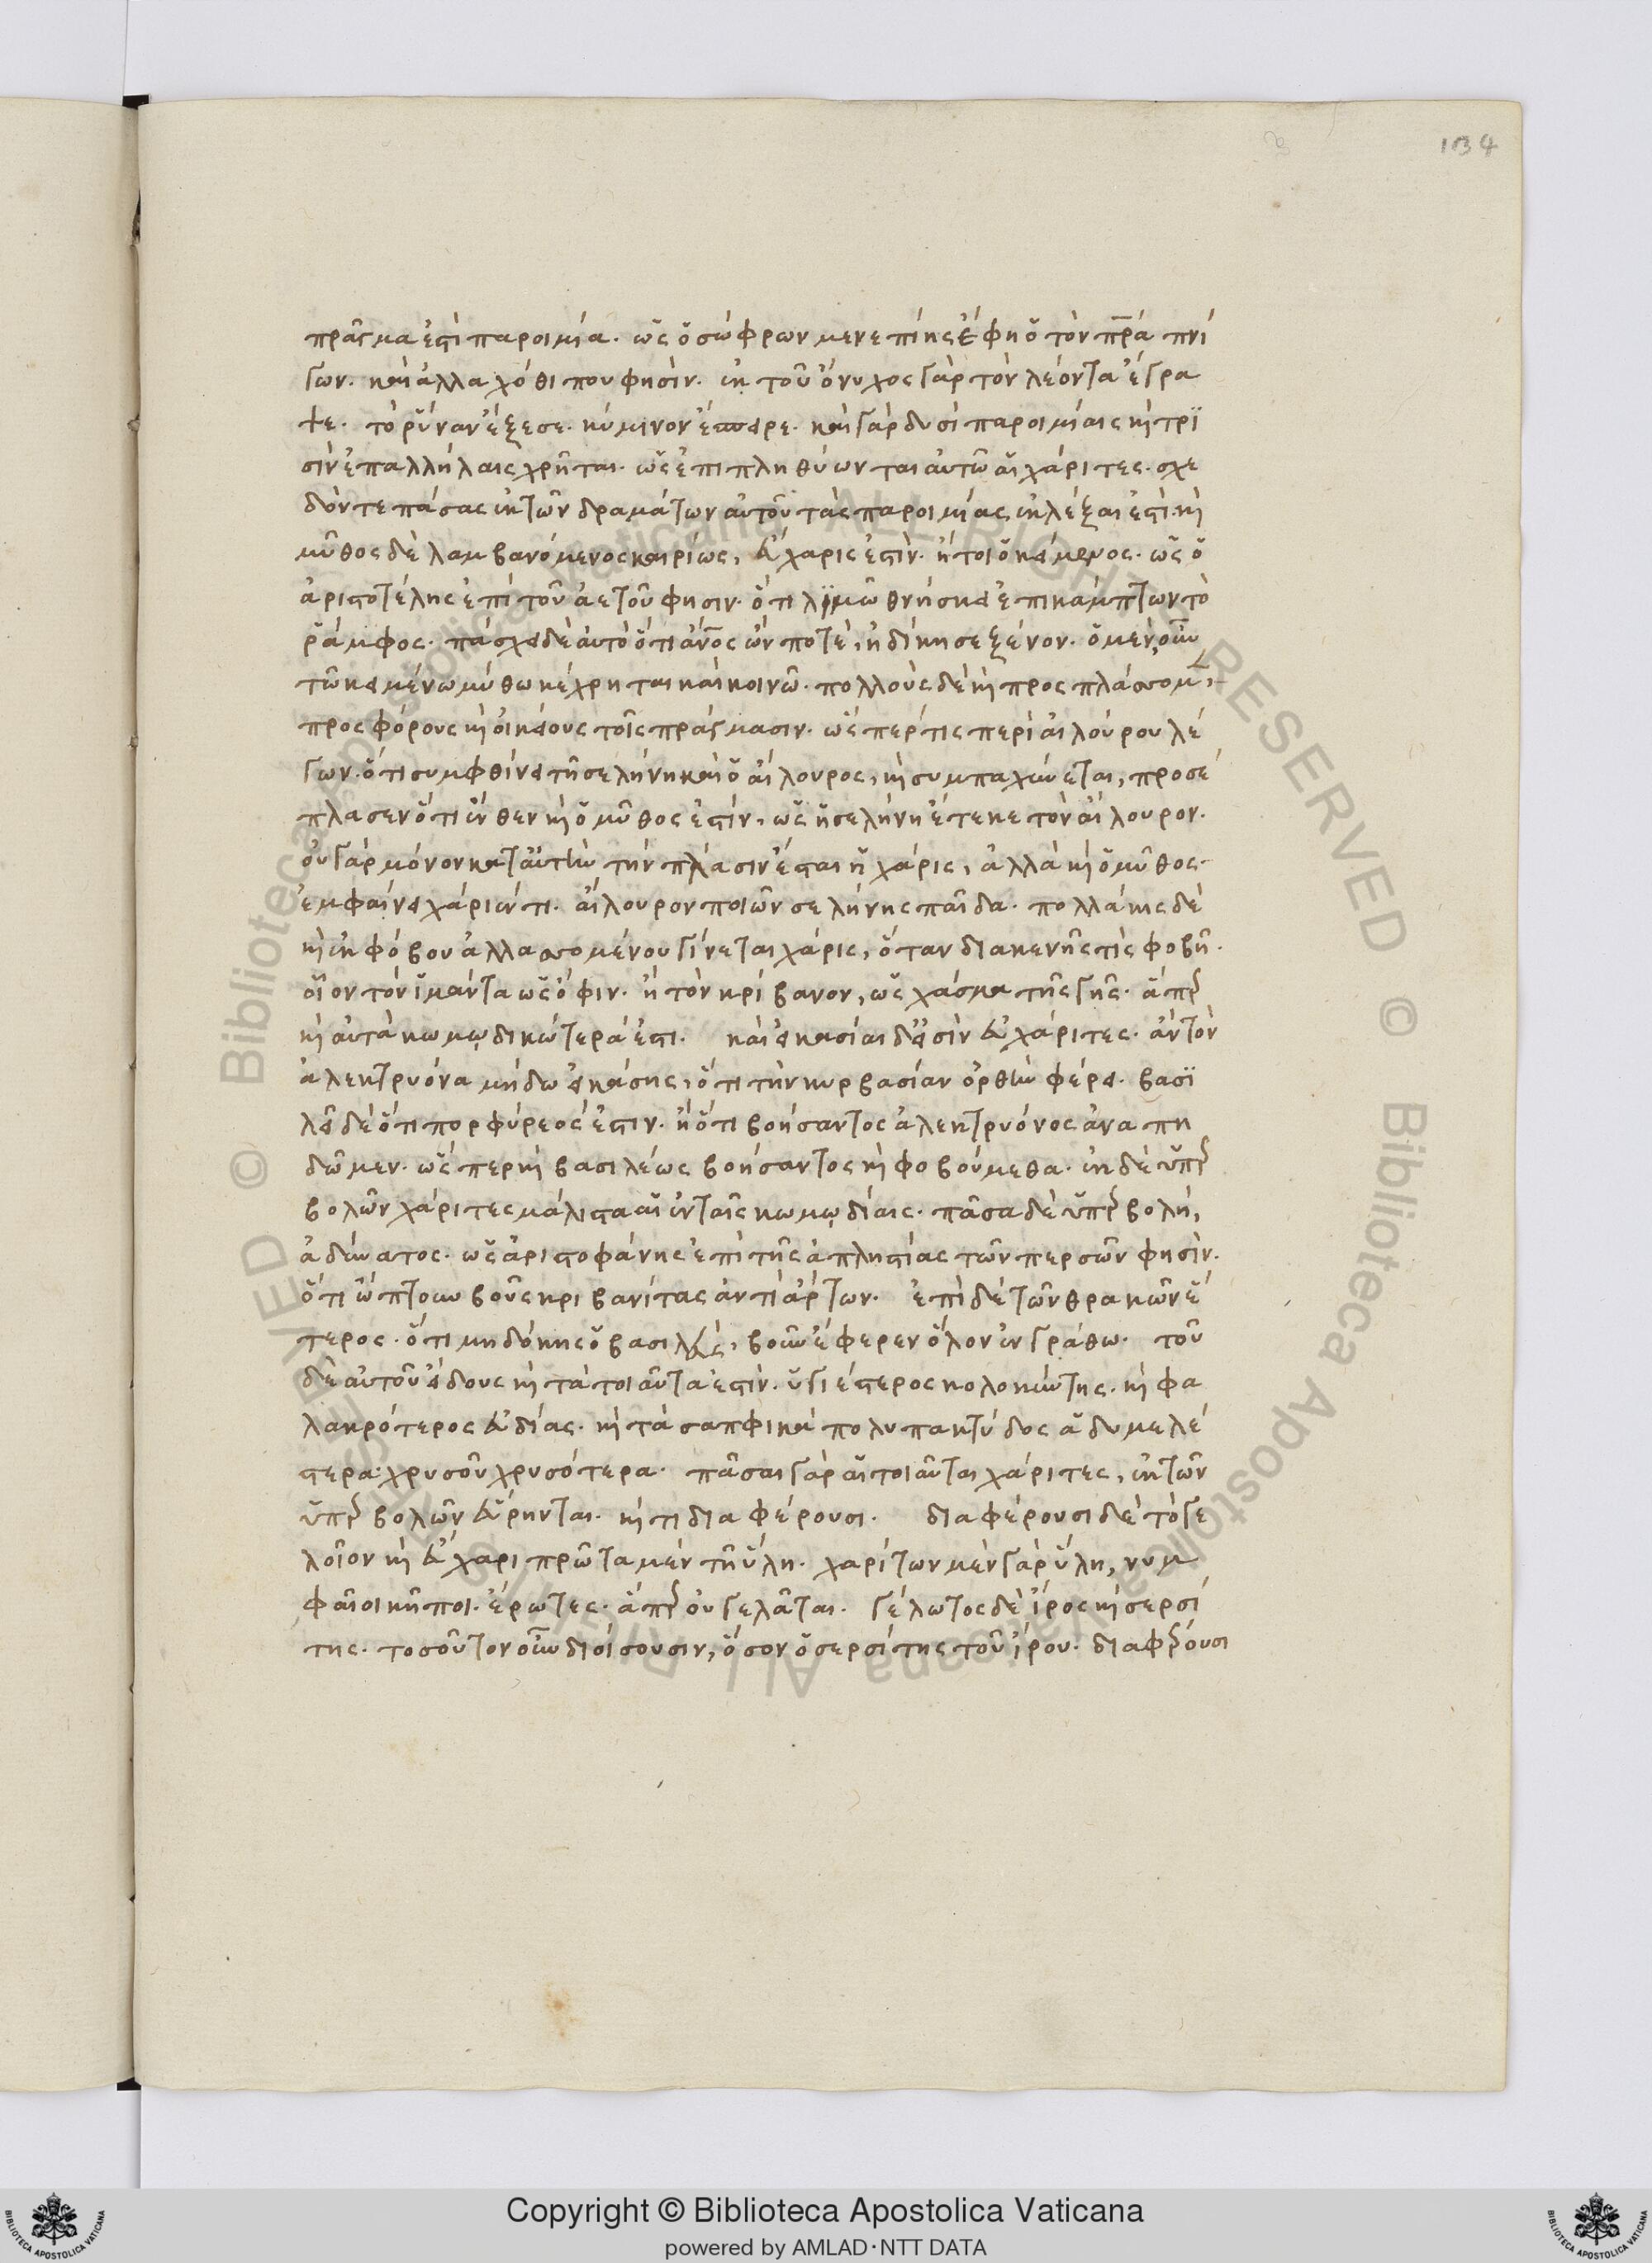 134
πρᾶγμα ἐστὶ παροιμία. ὡς ὁ σώφρων μενεπίης ἔφη ὁ τὸν πρᾱ́ πνί
γων. καὶ ἀλλαχόθι που φησὶν. ἐκ τοῦ ὄνυχος γὰρ τὸν λέοντα ἔγρα
ψε. τορύναν ἔξεσε. κύμινον ἔσπειρε. καὶ γὰρ δυσὶ παροιμίαις κὶ τρϊ
σὶν ἐπαλλήλαις χρῆται. ὡς ἐπιπληθύωνται αὐτῶ αἱ χάριτες. σχε
δόν τε πάσας ἐκ τῶν δραμάτων αὐτοῦ τὰς παροιμίας ἐκλέξαι ἐστὶ. κὶ
μῦθος δὲ λαμβανόμενος καιρίως, εὔχαρις ἐστὶν. ἤτοι ὁ κείμενος. ὡς ὁ
ἀριστοτέλης ἐπὶ τοῦ ἀετοῦ φησιν. ὅτι λϊμῶ θνήσκει ἐπικάμπτων τὸ
ῥάμφος. πάσχει δὲ αὐτὸ ὅτι ἄν̅ο̅ς ὢν ποτὲ, ἠδίκησε ξένον. ὁ μὲν οὖν
τῶ κειμένω μύθω κέχρηται καὶ κοινῶ. πολλοὺς δὲ κὶ προσπλάσσομ,
προσφόρους κὶ οἰκείους τοῖς πράγμασιν. ὥσπερ τις περὶ αἰλούρου λέ
γων. ὅτι συμφθίνει τῆ σελήνη καὶ ὁ αἴλουρος, κὶ συμπαχύνεται, προσέ
πλασεν ὅτι ἔνθεν κὶ ὁ μῦθος ἐστίν, ὡς ἡ σελήνη ἔτεκε τὸν αἴλουρον.
οὐ γὰρ μόνον κατ αὐτὴν τὴν πλάσιν ἔσται ἡ χάρις, ἀλλὰ κὶ ὁ μῦθος
ἐμφαίνει χάριέν τι. αἴλουρον ποιῶν σελήνης παῖδα. πολλάκις δὲ
κὶ ἐκ φόβου ἀλλασσομένου γίνεται χάρις, ὅταν διακενῆς τὶς φοβῆ.
οἷον τὸν ἱμάντα ὡς ὄφιν. ἢ τὸν κρίβανον, ὡς χάσμα τῆς γῆς. ἅπερ
κὶ αὐτὰ κωμῳδικώτερά ἐστι. καὶ εἰκασίαι δ εἰσὶν εὐχάριτες. ἂν τὸν
ἀλεκτρυόνα μήδω εἰκάσης, ὅτι τὴν κυρβασίαν ὀρθὴν φέρει. βασϊ
λεῖ δὲ ὅτι πορφύρεός ἐστιν. ἢ ὅτι βοήσαντος ἀλεκτρυόνος ἀναπη
δῶμεν. ὥσπερ κὶ βασιλέως βοήσαντος κὶ φοβούμεθα. ἐκ δὲ ὑπερ
βολῶν χάριτες μάλιστα αἱ ἐν ταῖς κωμῳδίαις. πᾶσα δὲ ὑπερβολὴ,
ἀδύνατος. ὡς ἀριστοφάνης ἐπὶ τῆς ἀπληστίας τῶν περσῶν φησὶν.
ὅτι ὤπτουν βοῦς κριβανίτας ἀντὶ ἄρτων. ἐπὶ δὲ τῶν θρακῶν ἕ
τερος. ὅτι μηδόκης ὁ βασιλεὺς, βοῦν ἔφερεν ὅλον ἐν γνάθω. τοῦ
δὲ αὐτοῦ εἴδους κὶ τὰ τοιαῦτα ἐστὶν. ὑγιέστερος κολοκύντης. κὶ φα
λακρότερος εὐδίας. κὶ τὰ σαπφικὰ πολυπακτύδος ἁδυμελέ
στερα. χρυσοῦ χρυσότερα. πᾶσαι γὰρ αἱ τοιαῦται χάριτες, ἐκ τῶν
ὑπερβολῶν εὕρηνται. κὶ τι διαφέρουσι. διαφέρουσι δὲ τὸ γε
λοῖον κὶ εὔχαρι πρῶτα μὲν τῆ ὕλη. χαρίτων μὲν γὰρ ὕλη, νυμ
φαῖοι κῆποι. ἔρωτες. ἅπερ οὐ γελᾶται. γέλωτος δὲ ἶρος κὶ σερσί
της. τοσοῦτον οὖν διοίσουσιν, ὅσον ὁ σερσίτης τοῦ ἴρου. διαφερουσι
Copyright © Biblioteca Apostolica Vaticana
powered by AMLAD·NTT DATA